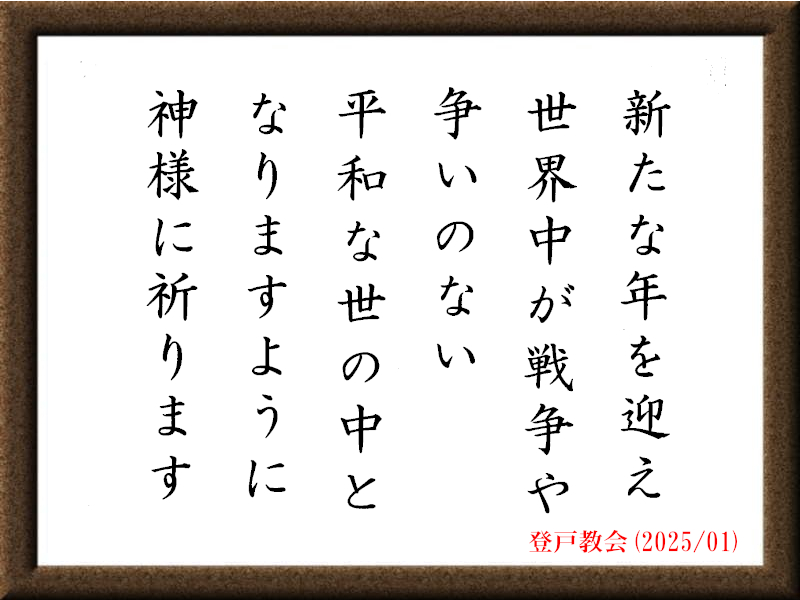 新たな年を迎え
世界中が戦争や
争いのない
平和な世の中と
なりますように
神様に祈ります
登戸教会(2025/01)